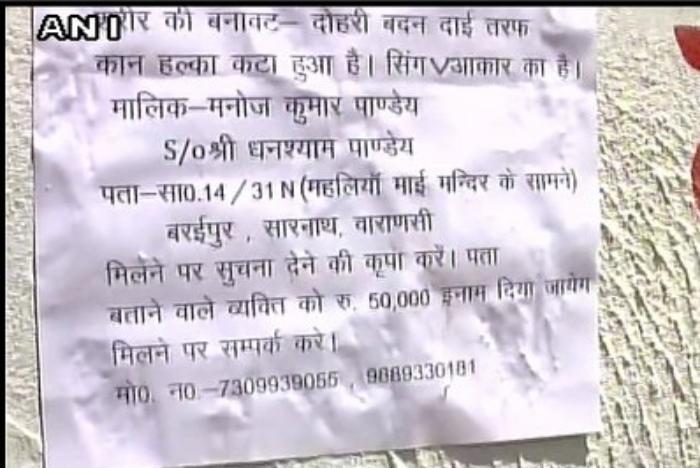 ANI
शरीर की बनावट– दोहरी बदन दाई तरफ
कान हल्का कटा हुआ है। सिंग Vआकार का है।
मालिक–मनोज कुमार पाण्डेय
S/oश्री धनश्याम पाण्डेय
पता–सा0.14/31N(महलियाँ माई मन्दिर के सामने)
बरईपुर, सारनाथ, वाराणसी
मिलेने पर सुचना देने की कृपा करें। पता
बताने वाले व्यक्ति को रु. 50,000 इनाम दिया जायेग
मिलने पर सम्पर्क करे।
मो0. न0.–7309939055, 9889330181